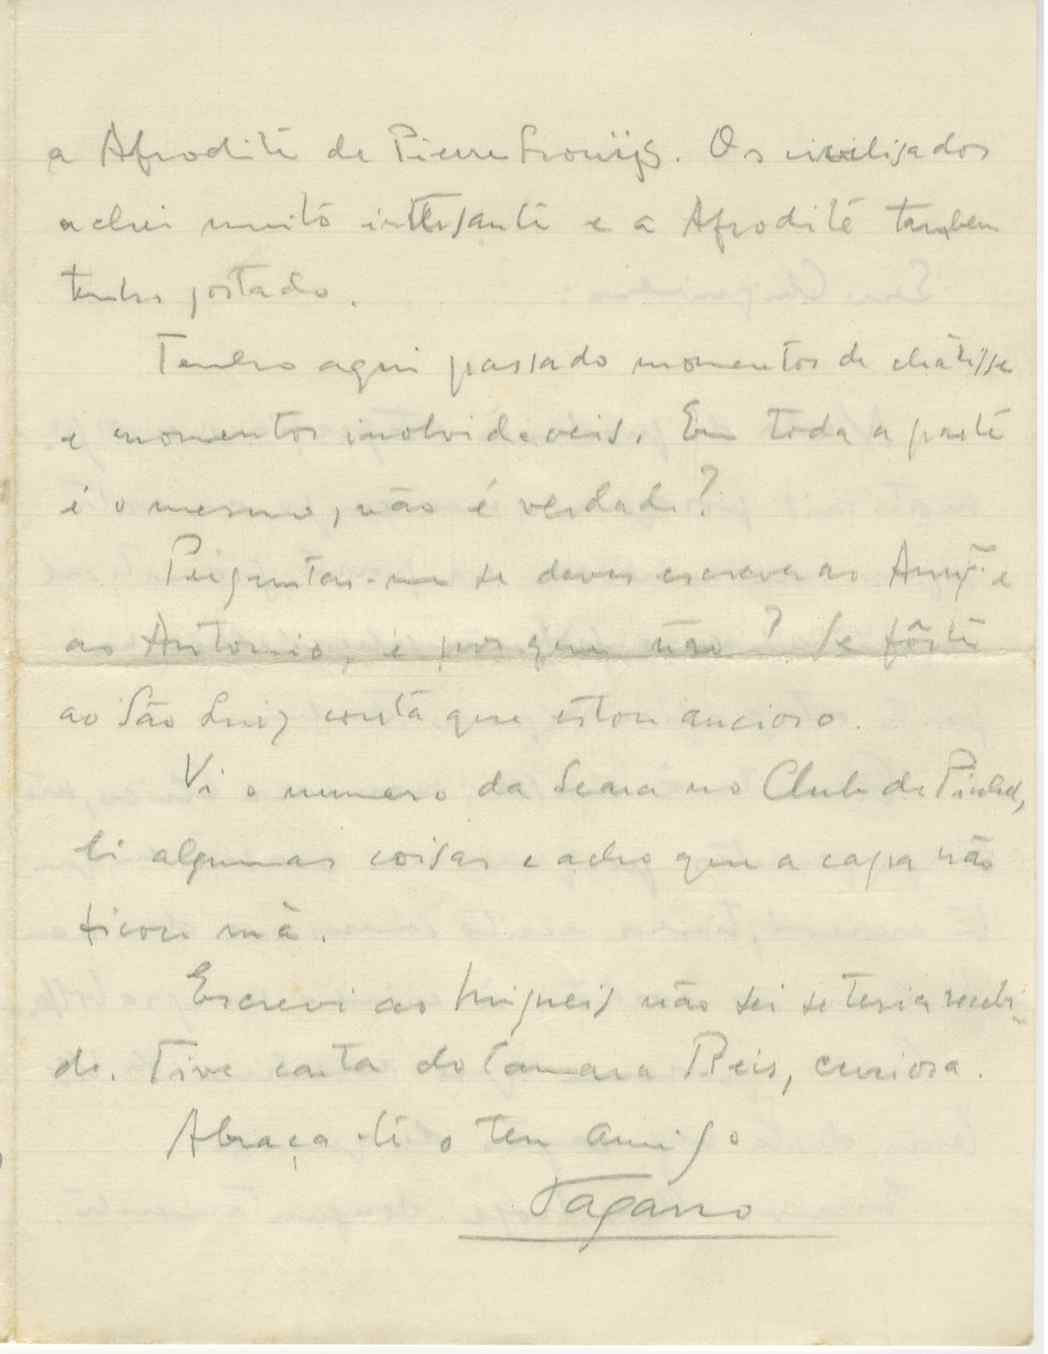 a Afrodite de Pierre Louÿs. Os civilisados
achei muito intressante e a Afrodite tambem
tenho gostado.
Tenho aqui passado momentos de chatisse
e momentos inolvidaveis. Em toda a parte
é o mesmo, não é verdade?
Perguntas-me se deves escrever ao e
ao Antonio, e porque não? Se fôste
ao São Luiz conta que estou ancioso.
Vi o numero da Seara no Club de Pinhel,
li algumas coisas e acho que a capa não
ficou má.
Escrevi ao Migueis não sei se teria recebi-
do. Tive carta do Camara Reis, curiosa.
Abraça-te o teu amigo